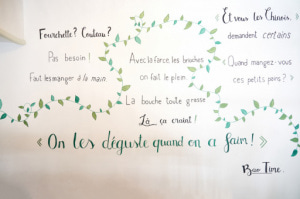 Fourchette? Couteau?
Pas besoin!
Faut les manger à la main
Avec la farce, les brioches
on fait le plein
La bouche toute grasse
Là ça craint!
Et vous les Chinois,
demandent certains
« Quand mangez-vous
ces petits pains?
« On les déguste quand on a faim! »
Bao Time.